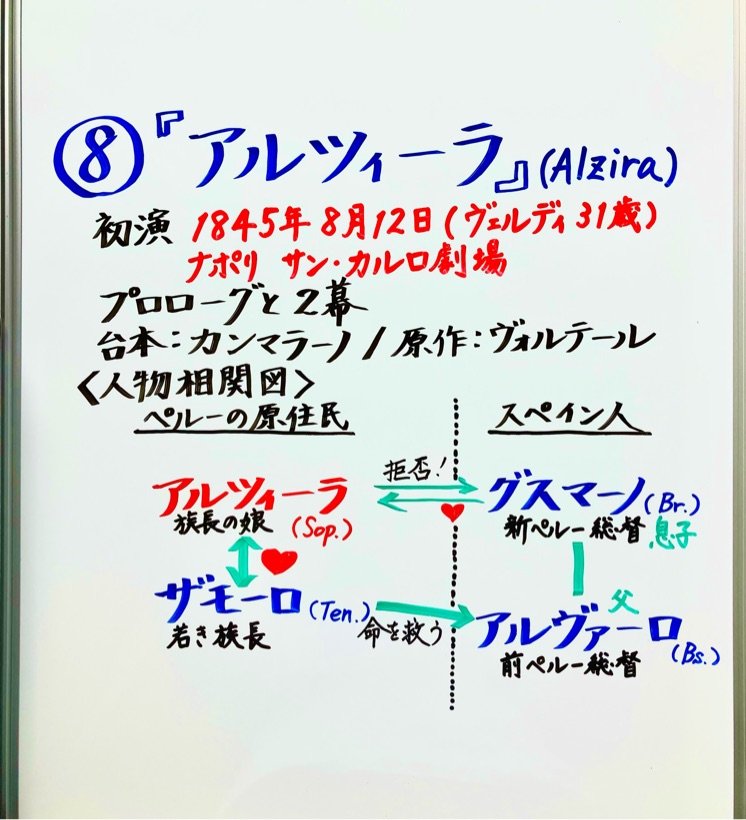 ⑧『アルツィーラ』(Alzira)
初演 1845年8月12日(ヴェルディ31歳)
ナポリ サン・カルロ劇場
プロローグと2幕
台本:カンマラーノ/原作:ヴォルテール
〈人物相関図〉
ペルーの原住民
スペイン人
アルツィーラ
族長の娘 (Sop.)
拒否!
グスマーノ(Br.)
新ペルー総督 息子
ザモーロ(Ten.)
若き族長
命を救う
父
アルヴァーロ(Bs.)
前ペルー総督